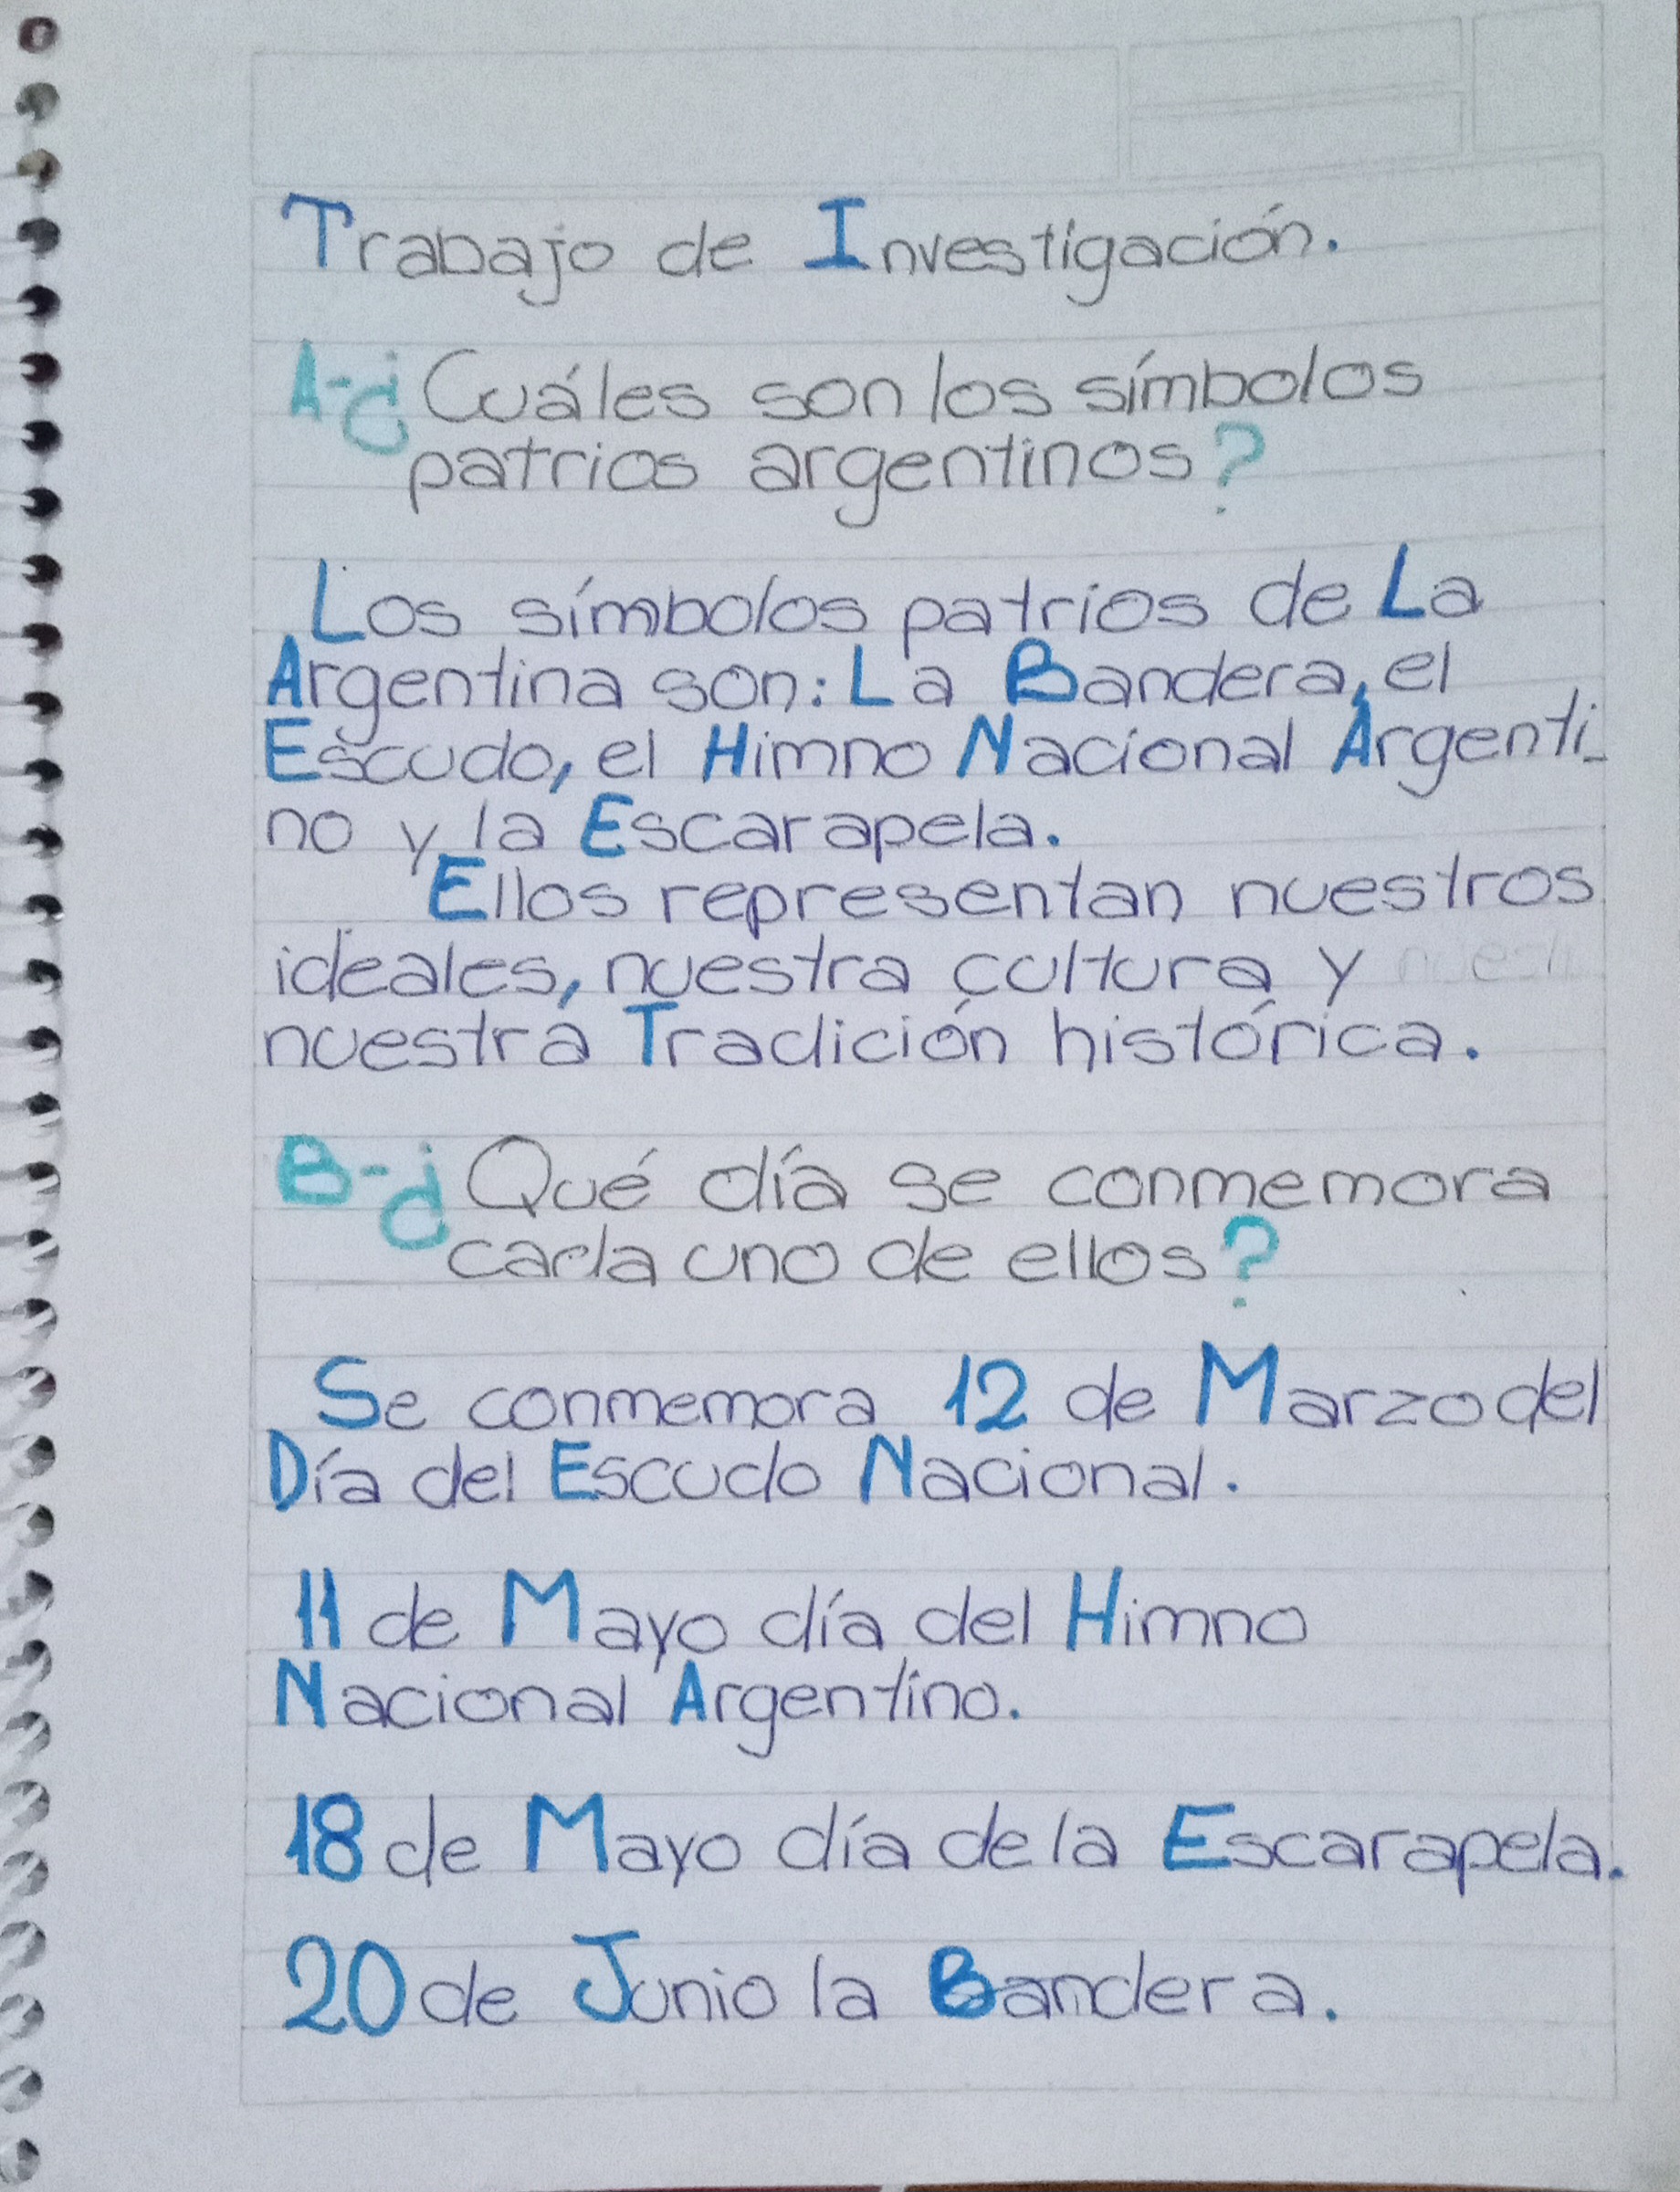 Trabajo de Investigación.
A-¿Cuáles son los símbolos
patrios argentinos?
Los símbolos patrios de La
Argentina son: La Bandera, el
Escudo, el Himno Nacional Argenti-
no y la Escarapela.
Ellos representan nuestros
ideales, nuestra cultura y
nuestra Tradición histórica.
B-¿Qué día se conmemora
cada uno de ellos?
Se conmemora 12 de Marzo del
Día del Escudo Nacional.
11 de Mayo día del Himno
Nacional Argentino.
18 de Mayo día de la Escarapela.
20 de Junio la Bandera.